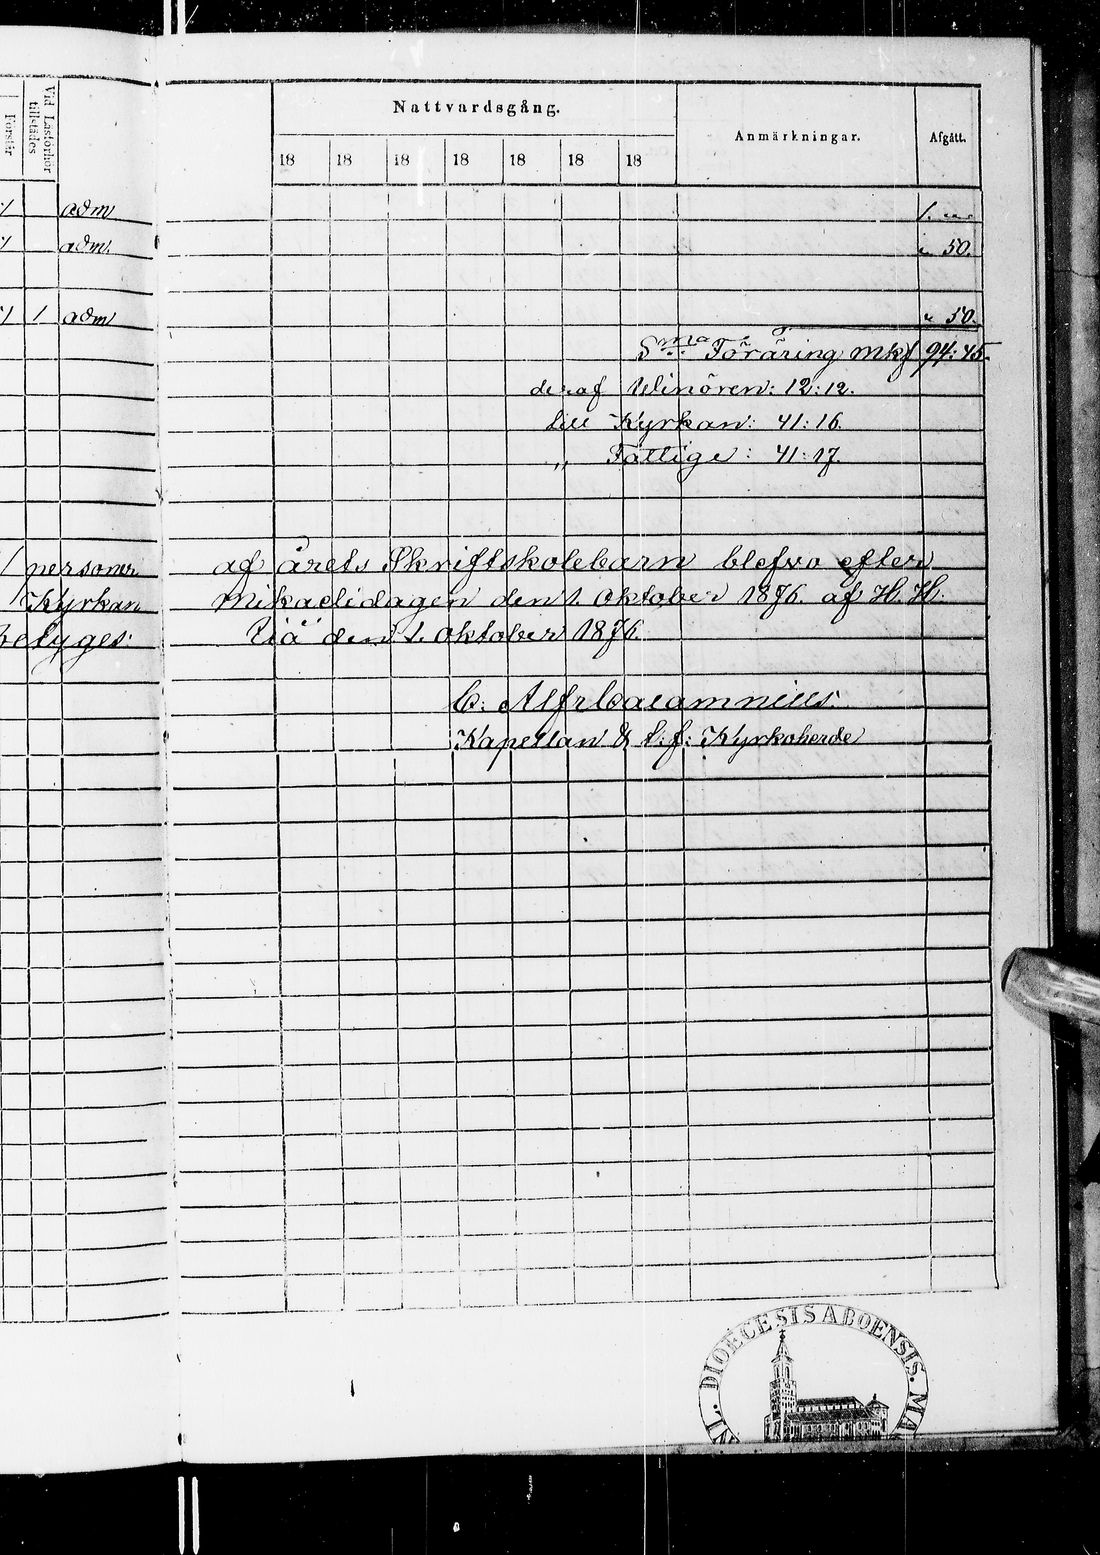 Nattvardsgång.
Anmärkningar.
Afgått.
Förstår
Vid Läsförhör tillstädes
18 18 18 18 18 18 18
adm
adm. 50.
1 1 adm 50.
Sma Föräring mkf 94:45.
deraf Winören: 12:12.
till Kyrkan: 41:16.
„ Fattige: 41:17.
personer af årets Skriftskolebarn blefvo efter
Kyrkan Mikaelidagen den 1. Oktober 1876 af H. H.
betyges: den 1. Oktober 1876
C. Alfr Calamnius.
Kapellan & t.f. Kyrkoherde
DIOECESIS ABOENSIS. MA